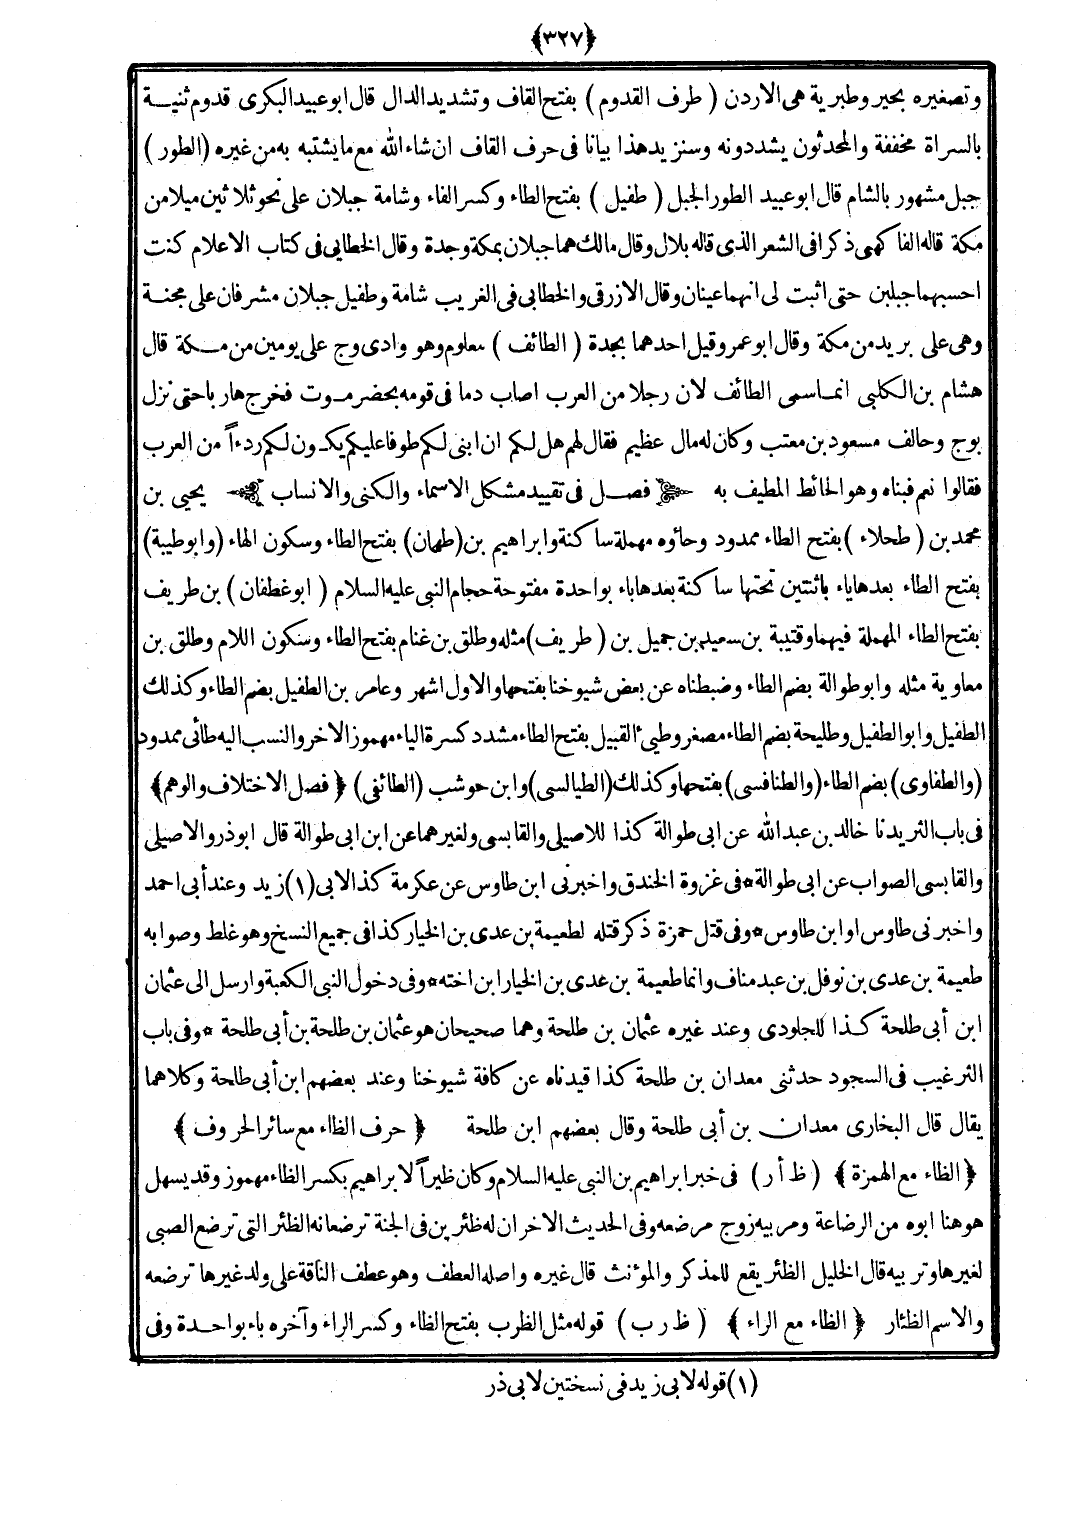 ﴿٣٢٧﴾
وتصغيره بحير وطبرية هى الاردن ( طرف القدوم ) بفتح القاف وتشديد الدال قال ابو عبيد البكرى قدوم ثنيــة
بالسراة مخففة والمحدثون يشددونه وسنزيد هذا بيانا فى حرف القاف ان شاء الله مع ما يشتبه به من غيره (الطور )
جبل مشهور بالشام قال ابو عبيد الطور الجبل ( طفيل ) بفتح الطاء وكسر الفاء وشامة جبلان على نحو ثلاثين ميلا من
مكة قاله الفاكهى ذكرا فى الشعر الذى قاله بلال وقال مالك هما جبلان بمكة وجدة وقال الخطابى فى كتاب الاعلام كنت
احسبهما جبلين حتى اثبت لى انهما عينان وقال الازرقى والخطابى فى الغريب شامة وطفيل جبلان مشرفان على مجنــة
وهى على بريد من مكة وقال ابو عمر وقيل احدهما بجدة ( الطائف ) معلوم وهو وادى وج على يومين من مــكة قال
هشام بن الكلبى انمــا سمى الطائف لان رجلا من العرب اصاب دما فى قومه بحضر مــوت فخرج هاربا حتى نزل
بوج وحالف مسعود بن معتب وكان له مال عظيم فقال لهم هل لكم ان ابنى لكم طوفا عليكم يكــون لكم ردءاً من العرب
فقالوا نعم فبناه وهو الحائط المطيف به فصــل فى تقييد مشكل الاسماء والكنى والانساب يحيى بن
محمد بن ( طحلاء ) بفتح الطاء ممدود وحاؤه مهملة ساكنة وابراهيم بن (طهمان) بفتح الطاء وسكون الهاء (وابو طيبة)
بفتح الطاء بعدها ياء باثنتين تحتها ساكنة بعدها باء بواحدة مفتوحة حجام النبى عليه السلام ( ابو غطفان ) بن طريف
بفتح الطاء المهملة فيهما وقتيبة بن سعيد بن جميل بن ( طريف) مثله وطلق بن غنام بفتح الطاء وسكون اللام وطلق بن
معاوية مثله وابو طوالة بضم الطاء وضبطناه عن بعض شيوخنا بفتحها والاول اشهر وعامر بن الطفيل بضم الطاء وكذلك
الطفيل وابو الطفيل وطليحة بضم الطاء مصغر وطيئ القبيل بفتح الطاء مشدد كسرة الياء مهموز الاخر والنسب اليه طائى ممدود
(والطفاوى) بضم الطاء (والطنافسى) بفتحها وكذلك (الطيالسى) وابن حوشب (الطائفى) ﴿ فصل الاختلاف والوهم ﴾
فى باب الثريد نا خالد بن عبد الله عن ابى طوالة كذا للاصيلى والقابسى ولغيرهما عن ابن ابى طوالة قال ابو ذر والاصيلى
والقابسى الصواب عن ابى طوالة * فى غزوة الخندق واخبرنى ابن طاوس عن عكرمة كذا لابى (١) زيد وعند أبى احمد
واخبرنى طاوس او ابن طاوس * وفى قتل حمزة ذكر قتله لطعيمة بن عدى بن الخيار كذا فى جميع النسخ وهو غلط وصوابه
طعيمة بن عدى بن نوفل بن عبد مناف وانما طعيمة بن عدى بن الخيار ابن اخته * وفى دخول النبى الكعبة وارسل الى عثمان
ابن أبى طلحة كــذا للجلودى وعند غيره عثمان بن طلحة وهما صحيحان هو عثمان بن طلحة بن أبى طلحة * وفى باب
الترغيب فى السجود حدثنى معدان بن طلحة كذا قيدناه عن كافة شيوخنا وعند بعضهم ابن أبى طلحة وكلاهما
يقال قال البخارى معدان بن أبى طلحة وقال بعضهم ابن طلحة ﴿ حرف الظاء مع سائر الحروف ﴾
﴿ الظاء مع الهمزة ﴾ ( ظ أ ر ) فى خبر ابراهيم بن النبى عليه السلام وكان ظيراً لابراهيم بكسر الظاء مهموز وقد يسهل
هو هنا ابوه من الرضاعة ومربيه زوج مرضعه وفى الحديث الاخر ان له ظئرين فى الجنة ترضعانه الظئر التى ترضع الصبى
لغيرها وتربيه قال الخليل الظئر يقع للمذكر والمؤنث قال غيره واصله العطف وهو عطف الناقة على ولد غيرها ترضعه
والاسم الظئار ﴿ الظاء مع الراء ﴾ ( ظ ر ب ) قوله مثل الظرب بفتح الظاء وكسر الراء وآخره باء بواحدة وفى
(١) قوله لابى زيد فى نسختين لابى ذر